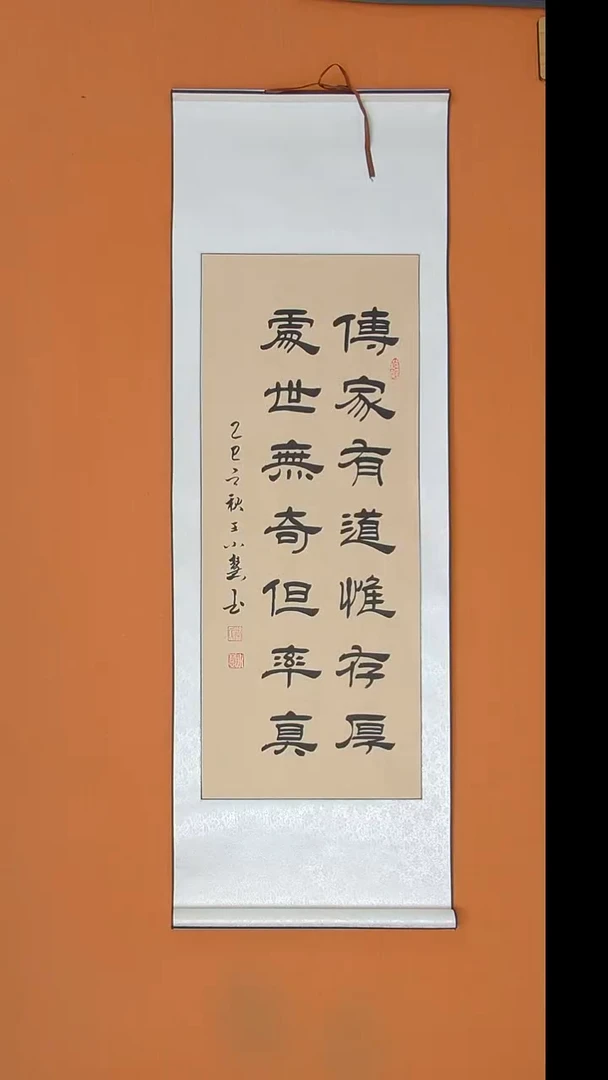 傳家有道惟存厚
處世無奇但率真
乙巳之秋王小燕书